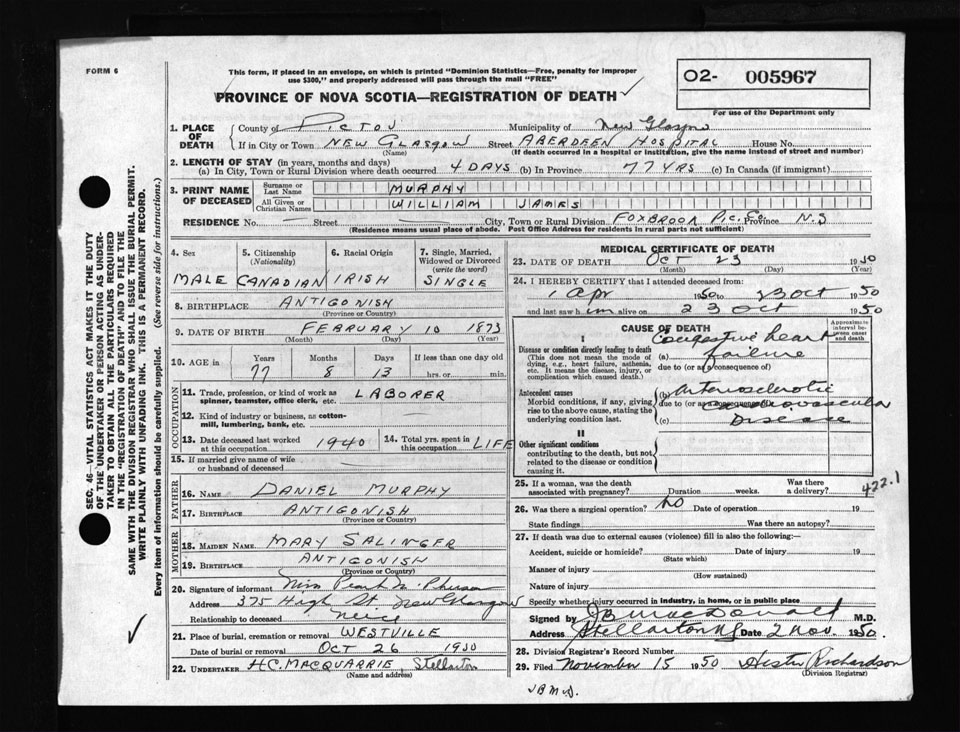 FORM 6
This form, if placed in an envelope, on which is printed "Dominion Statistics—Free, penalty for improper
use $300," and properly addressed will pass through the mail "FREE"
PROVINCE OF NOVA SCOTIA—REGISTRATION OF DEATH
O2- 005967
For use of the Department only
1. PLACE OF DEATH
County of PICTOU Municipality of New Glasgow
If in City or Town NEW GLASGOW Street ABERDEEN HOSPITAL House No.
(Name) (If death occurred in a hospital or institution, give the name instead of street and number)
2. LENGTH OF STAY (in years, months and days)
(a) In City, Town or Rural Division where death occurred 4 DAYS (b) In Province 77 YRS (c) In Canada (if immigrant)
3. PRINT NAME OF DECEASED
Surname or Last Name MURPHY
All Given or Christian Names WILLIAM JAMES
RESIDENCE No. Street City, Town or Rural Division FOXBROOK PIC. Co. Province N.S
(Residence means usual place of abode. Post Office Address for residents in rural parts not sufficient)
4. Sex MALE
5. Citizenship (Nationality) CANADIAN
6. Racial Origin IRISH
7. Single, Married, Widowed or Divorced (write the word) SINGLE
8. BIRTHPLACE ANTIGONISH
(Province or Country)
9. DATE OF BIRTH FEBRUARY 10 1873
(Month) (Day) (Year)
10. AGE in Years Months Days If less than one day old
77 8 13 hrs. or min.
OCCUPATION
11. Trade, profession, or kind of work as
spinner, teamster, office clerk, etc. LABORER
12. Kind of industry or business, as cotton-
mill, lumbering, bank, etc.
13. Date deceased last worked at this occupation 1940
14. Total yrs. spent in this occupation LIFE
15. If married give name of wife
or husband of deceased
FATHER
16. NAME DANIEL MURPHY
17. BIRTHPLACE ANTIGONISH
(Province or Country)
MOTHER
18. MAIDEN NAME MARY SALINGER
19. BIRTHPLACE ANTIGONISH
(Province or Country)
20. Signature of informant Miss Pearl McPherson
Address 375 High St. New Glasgow
Relationship to deceased Niece
21. Place of burial, cremation or removal WESTVILLE
Date of burial or removal OCT 26 1950
22. UNDERTAKER H.C. MACQUARRIE, Stellarton
(Name and address)
MEDICAL CERTIFICATE OF DEATH
23. DATE OF DEATH OCT 23 1950
(Month) (Day) (Year)
24. I HEREBY CERTIFY that I attended deceased from:
1 Apr 1950 to 23 Oct 1950
and last saw him alive on 23 Oct 1950
CAUSE OF DEATH
Approximate interval between onset and death
I
Disease or condition directly leading to death
(This does not mean the mode of
dying, e.g., heart failure, asthenia,
etc. It means the disease, injury, or
complication which caused death.)
(a) Congestive heart failure
due to (or as a consequence of)
Antecedent causes
Morbid conditions, if any, giving
rise to the above cause, stating the
underlying condition last.
(b) Arteriosclerotic
due to (or as a consequence of) cardiovascular
(c) Disease
II
Other significant conditions
contributing to the death, but not
related to the disease or condition
causing it.
25. If a woman, was the death Was there
associated with pregnancy? Duration weeks. a delivery?
422.1
26. Was there a surgical operation? No Date of operation 19
State findings Was there an autopsy?
27. If death was due to external causes (violence) fill in also the following:—
Accident, suicide or homicide? Date of injury 19
(State which)
Manner of injury
(How sustained)
Nature of injury
Specify whether injury occurred in industry, in home, or in public place
Signed by JB MacDonald M.D.
Address Stellarton NS Date 2 Nov. 1950.
28. Division Registrar's Record Number
29. Filed November 15 1950 Hester Richardson
(Division Registrar)
JBMD.
SEC. 46—VITAL STATISTICS ACT MAKES IT THE DUTY
OF THE UNDERTAKER OR PERSON ACTING AS UNDER-
TAKER TO OBTAIN ALL THE PARTICULARS REQUIRED
IN THE "REGISTRATION OF DEATH" AND TO FILE THE
SAME WITH THE DIVISION REGISTRAR WHO SHALL ISSUE THE BURIAL PERMIT.
WRITE PLAINLY WITH UNFADING INK. THIS IS A PERMANENT RECORD.
Every item of information should be carefully supplied. (See reverse side for instructions.)